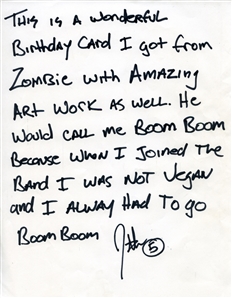 This is a wonderful
Birthday Card I got from
Zombie with Amazing
Art work as well. He
would call me Boom Boom
Because when I joined the
Band I was not Vegan
and I alway Had to go
Boom Boom
5